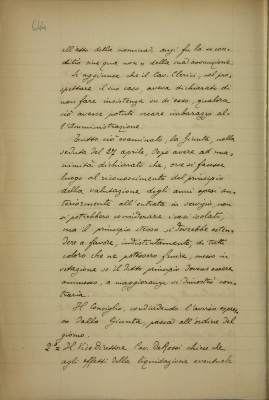 644
all'atto della nomina: anzi fu la se con-
ditio sine qua non della sua assunzione.
Si aggiunse che il Cav. Clerici, nel pro-
spettare il suo caso, aveva dichiarato di
non fare insistenza su di esso, qualora
ciò avesse potuto creare imbarazzo al-
l'Amministrazione.
Tutto ciò esaminato, la Giunta, nella
seduta del 27 aprile, dopo avere ad una-
nimità dichiarato che, ove si facesse
luogo al riconoscimento del principio
della valutazione degli anni spesi an-
teriormente all'entrata in servizio, non
si potrebbero considerare casi isolati,
ma il principio stesso si dovrebbe esten-
dere a favore, indistintamente, di tutti
coloro che ne potessero fruire, messo in
votazione se il detto principio dovesse essere
ammesso, a maggioranza si dimostrò con-
traria.
Il Consiglio, condividendo l'avviso espres-
so dalla Giunta passa all'ordine del
giorno.
2º= Il Vice Direttore Cav. DeRossi chiese che
agli effetti della liquidazione eventuale